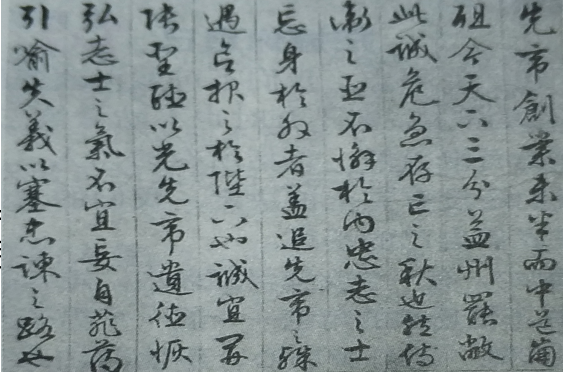 先帝創業未半而中道崩
殂今天下三分益州罷敝
此誠危急存亡之秋也然侍
衛之臣不懈於内忠志之士
忘身於外者蓋追先帝之殊
遇欲報之於陛下也誠宜開
張聖聽以光先帝遺德恢
弘志士之氣不宜妄自菲薄
引喻失義以塞忠諫之路也